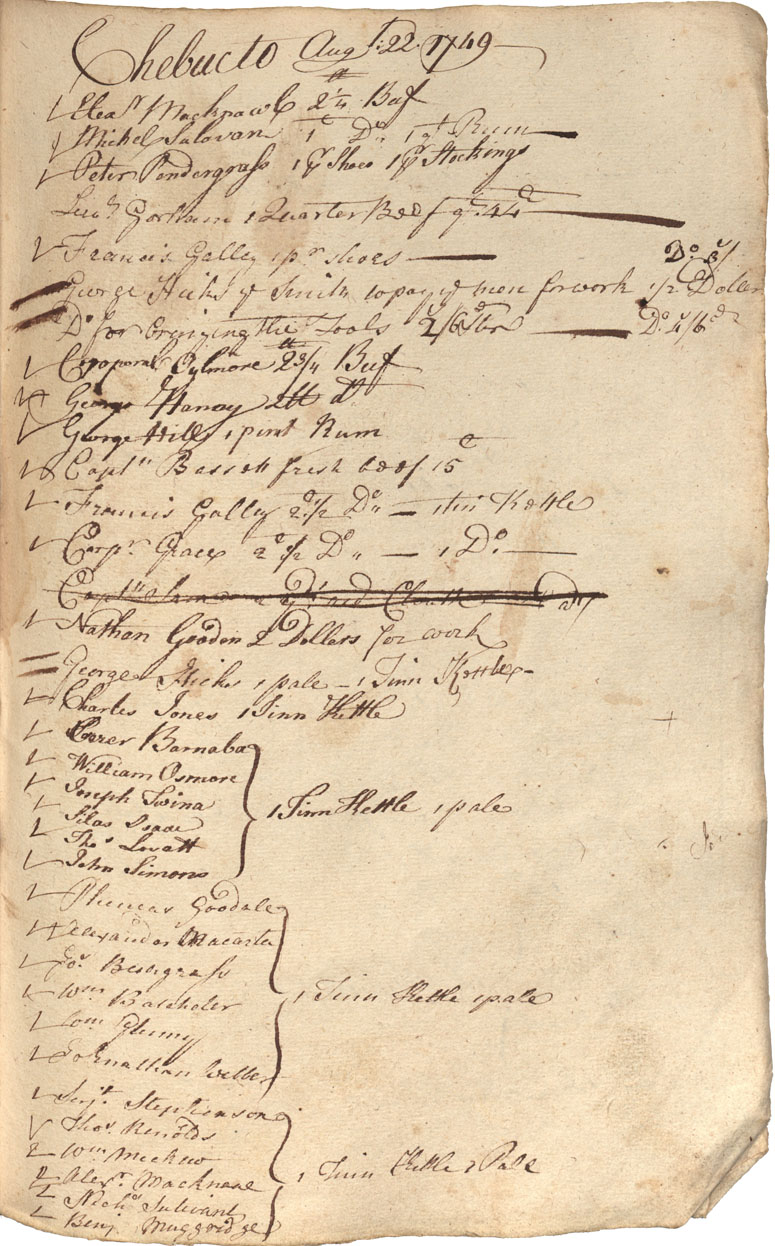 Chebucto Augst: 22. 1749
Eleasr Macknawl 2 1/4 Beef
Michel Salovan 1 Do 1 qt Rum
Peter Pendergrass 1 pr Shoes 1 pr Stockings
Gorham 1 Quarter Beef 44
Francis Galley 1 pr shoes Do
George Hicks ye Smith to pay ye men for work 1/2 Dollar
Do for the Tools 2/6 Do 4/6
Corporal 2 3/4 Beef
George Do
George Hills 1 pint Rum
Captn Bassett fresh beef 15
Francis Galley 2 1/2 Do — 1 tin Kettle
Corpr Grace 2 1/2 Do — 1 Do
Captn
Nathan Gooden 2 Dollars for work
George Hicks 1 pale — 1 Tinn Kettle
Charles Jones 1 Tinn Kettle
Barnaba
William Osmore
Joseph Twina
Silas Isaac
Thos Lovatt
John Simons
1 Tinn Kettle 1 pale
Phineas Goodale
Alexander Macarta
Wm Batcheler
Johnathan Webber
1 Tinn Kettle 1 pale
Serjt Stephenson
Thos Renolds
Wm
Alexr Macknane
Nichs Sulivant
Benj Muggridge
1 Tinn Kettle 1 Pale